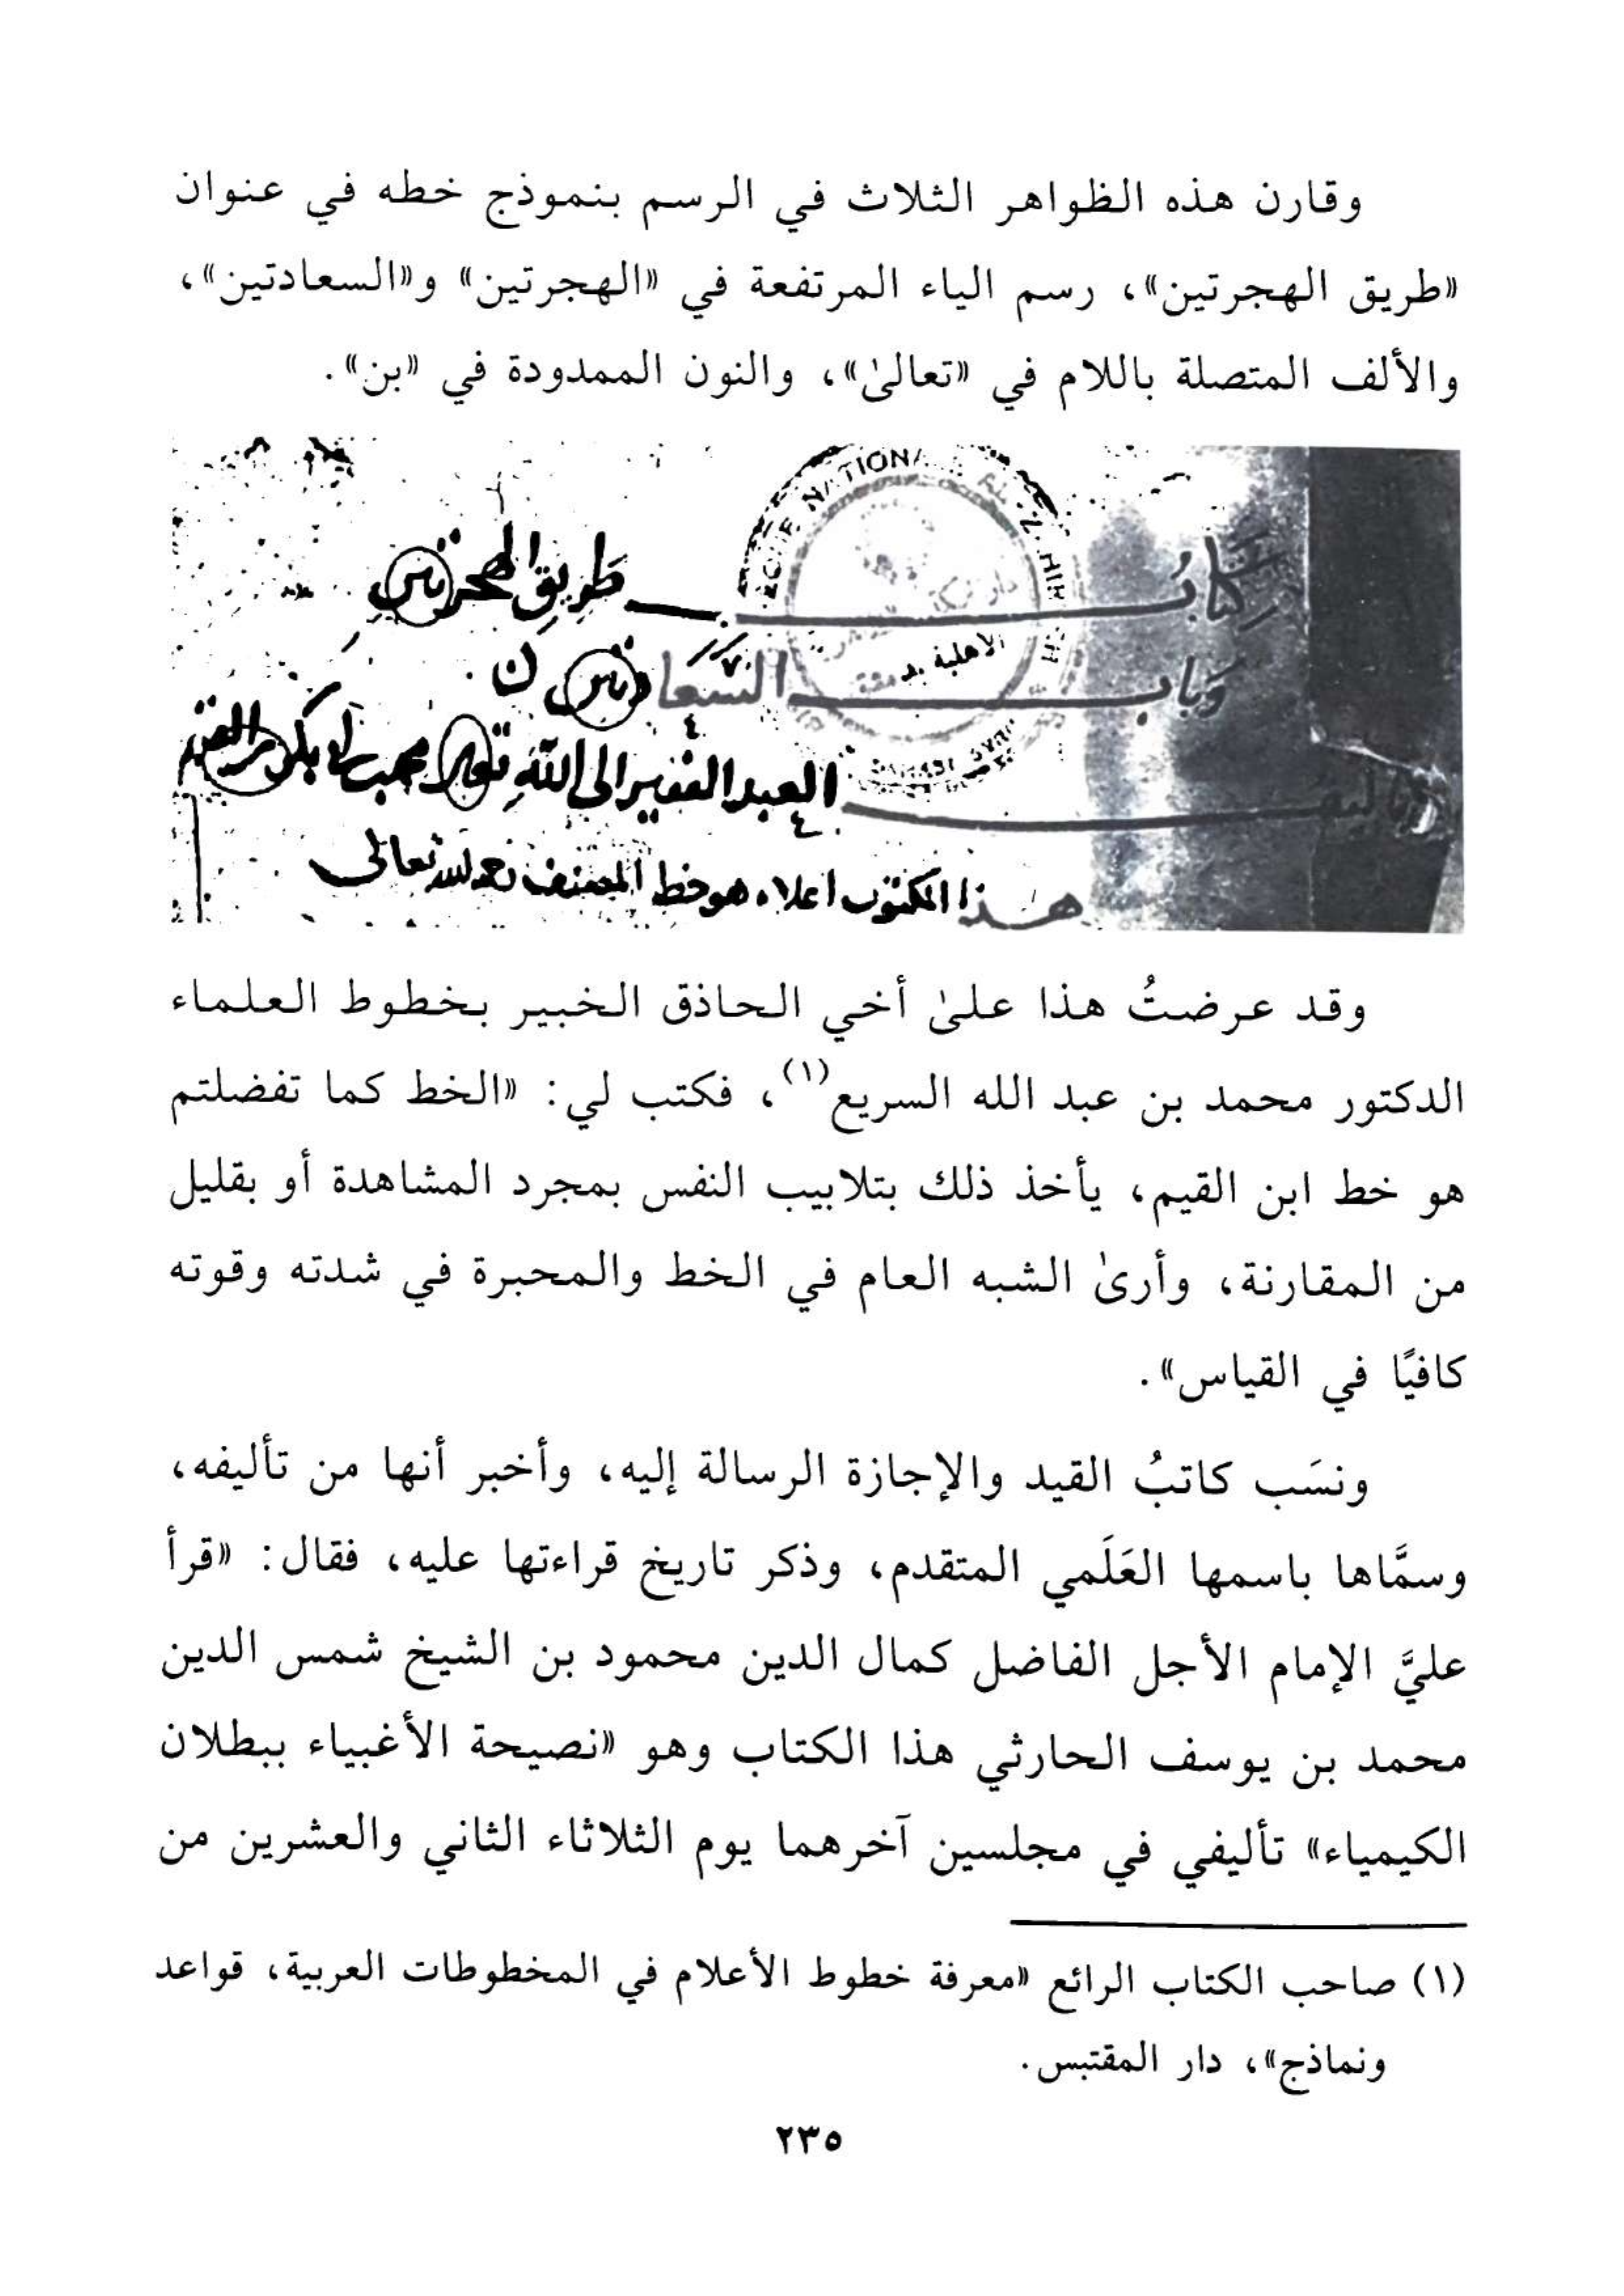 وقارن هذه الظواهر الثلاث في الرسم بنموذج خطه في عنوان
«طريق الهجرتين»، رسم الياء المرتفعة في «الهجرتين» و«السعادتين»،
والألف المتصلة باللام في «تعالىٰ»، والنون الممدودة في «بن».
كتابُ طريق الهجرتين
وَباب السعادتين
تاليف العبد الفقير الى الله تعالى محمد بن ابي بكر بن القيم
هذا المكتوب اعلاه هو خط المصنف رحمه الله تعالى
وقد عرضتُ هذا علىٰ أخي الحاذق الخبير بخطوط العلماء
الدكتور محمد بن عبد الله السريع(١)، فكتب لي: «الخط كما تفضلتم
هو خط ابن القيم، يأخذ ذلك بتلابيب النفس بمجرد المشاهدة أو بقليل
من المقارنة، وأرىٰ الشبه العام في الخط والمحبرة في شدته وقوته
كافيًا في القياس».
ونسَب كاتبُ القيد والإجازة الرسالة إليه، وأخبر أنها من تأليفه،
وسمَّاها باسمها العَلَمي المتقدم، وذكر تاريخ قراءتها عليه، فقال: «قرأ
عليَّ الإمام الأجل الفاضل كمال الدين محمود بن الشيخ شمس الدين
محمد بن يوسف الحارثي هذا الكتاب وهو «نصيحة الأغبياء ببطلان
الكيمياء» تأليفي في مجلسين آخرهما يوم الثلاثاء الثاني والعشرين من
(١) صاحب الكتاب الرائع «معرفة خطوط الأعلام في المخطوطات العربية، قواعد
ونماذج»، دار المقتبس.
٢٣٥